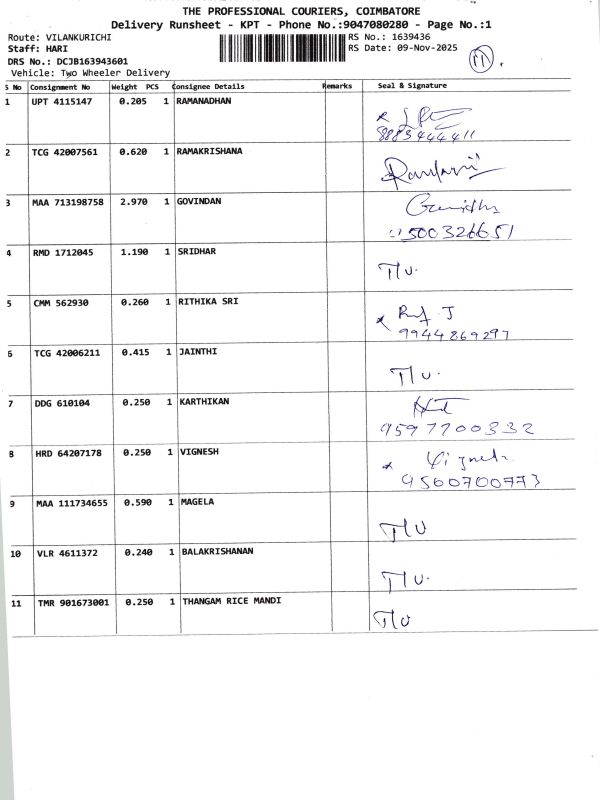 THE PROFESSIONAL COURIERS, COIMBATORE
Delivery Runsheet - KPT - Phone No.:9047080280 - Page No.:1
Route: VILANKURICHI
Staff: HARI
DRS No.: DCJB163943601
Vehicle: Two Wheeler Delivery
RS No.: 1639436
RS Date: 09-Nov-2025
11
S No Consignment No Weight PCS Consignee Details Remarks Seal & Signature
1 UPT 4115147 0.205 1 RAMANADHAN
8883444411
2 TCG 42007561 0.620 1 RAMAKRISHANA
3 MAA 713198758 2.970 1 GOVINDAN
500326651
4 RMD 1712045 1.190 1 SRIDHAR
T/U.
5 CMM 562930 0.260 1 RITHIKA SRI
9944869297
6 TCG 42006211 0.415 1 JAINTHI
T/U.
7 DDG 610104 0.250 1 KARTHIKAN
9597700332
8 HRD 64207178 0.250 1 VIGNESH
Vignesh
9500700773
9 MAA 111734655 0.590 1 MAGELA
T/U
10 VLR 4611372 0.240 1 BALAKRISHANAN
T/U.
11 TMR 901673001 0.250 1 THANGAM RICE MANDI
T/U